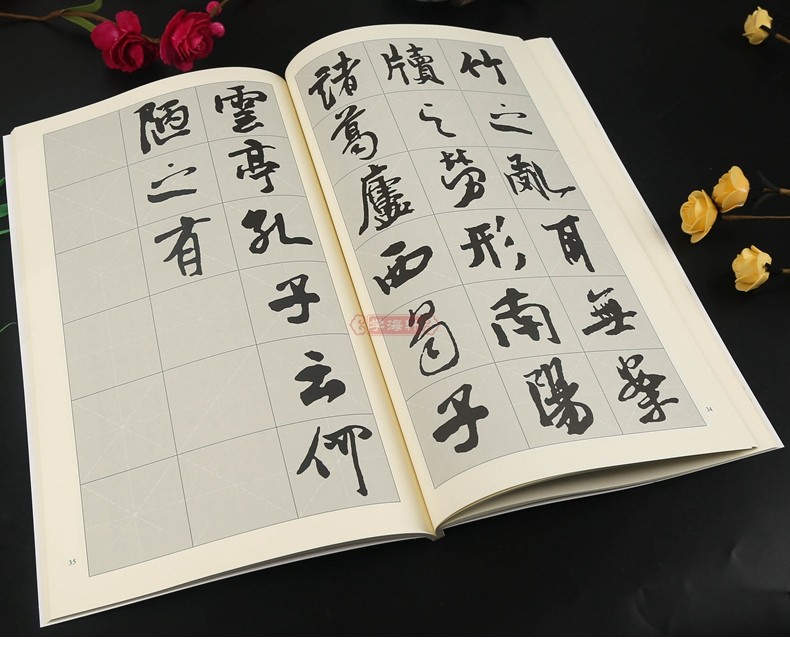 竹之亂耳無案
牘之勞形南陽
諸葛廬西蜀子
34
雲亭孔子云何
陋之有
35
学海